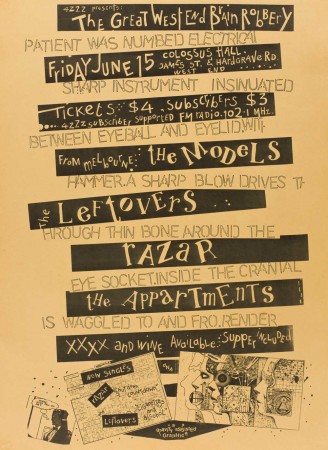 4ZZZ presents:
The Great West End Brain Robbery
PATIENT WAS NUMBED ELECTRICAL
FRIDAY JUNE 15 COLOSSUS HALL.
JAMES ST. & HARDGRAVE RD.
WEST END
SHARP INSTRUMENT INSINUATED
TICKETS: $4. SUBSCRIBERS $3
4ZZZ SUBSCRIBER SUPPORTED FM RADIO. 102.1 MHz.
BETWEEN EYEBALL AND EYELID, WITH
FROM MELBOURNE: the MODELS
HAMMER. A SHARP BLOW DRIVES TH
The LEFTOVERS
HROUGH THIN BONE AROUND THE
RAZAR
EYE SOCKET. INSIDE THE CRANIAL
the APPARTMENTS
IS WAGGLED TO AND FRO. RENDER
XXXX AND WINE AVAILABLE: SUPPER INCLUDED
NEW SINGLES
the
RAZAR
LEFTOVERS
GRAPHICS